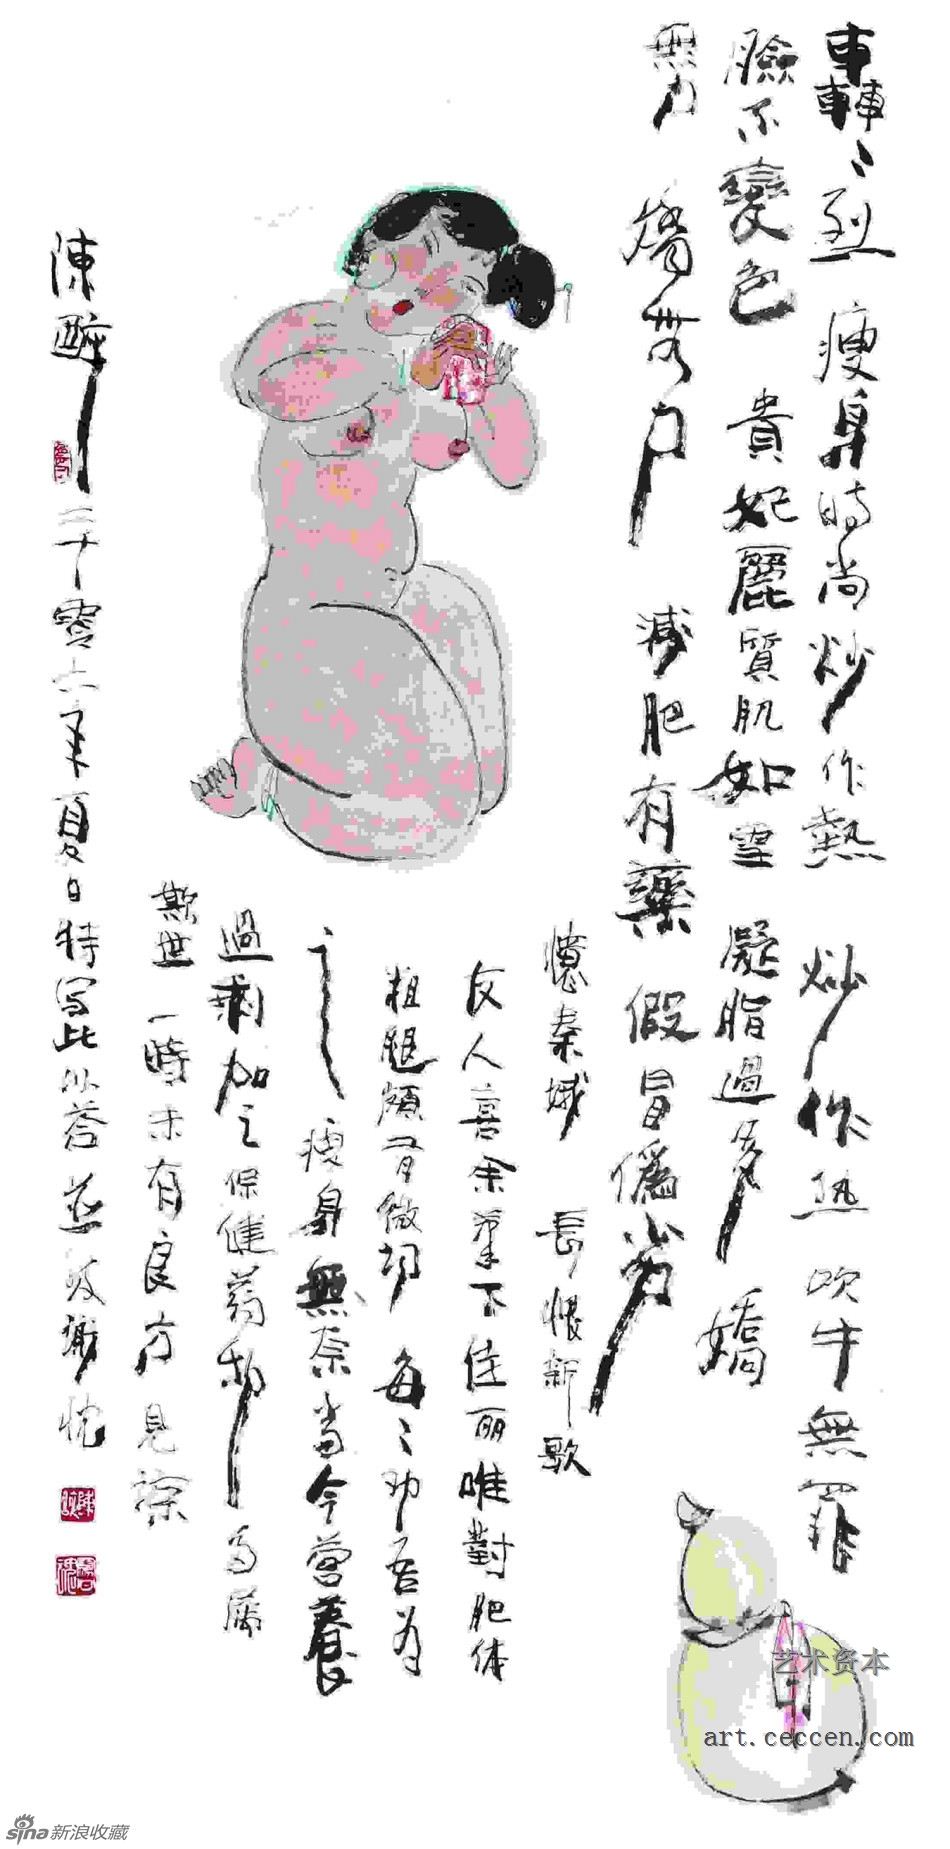 轟〻烈 瘦身時尚炒作熱 炒作热 吹牛無罪
臉不變色 貴妃麗質肌如雪 凝脂過多 嬌
無力 嬌無力 減肥有藥 假冒僞劣
憶秦娥 長恨新歌
友人喜余筆下佳丽唯對肥体
粗腿頗有微詞 每〻劝吾为
之瘦身無奈當今營養
過剩加之保健药物多属
欺世一時未有良方見諒
陳醉 二千零六年夏日特写此以答並致謝忱
艺术资本
art.ceccen.com
sina新浪收藏